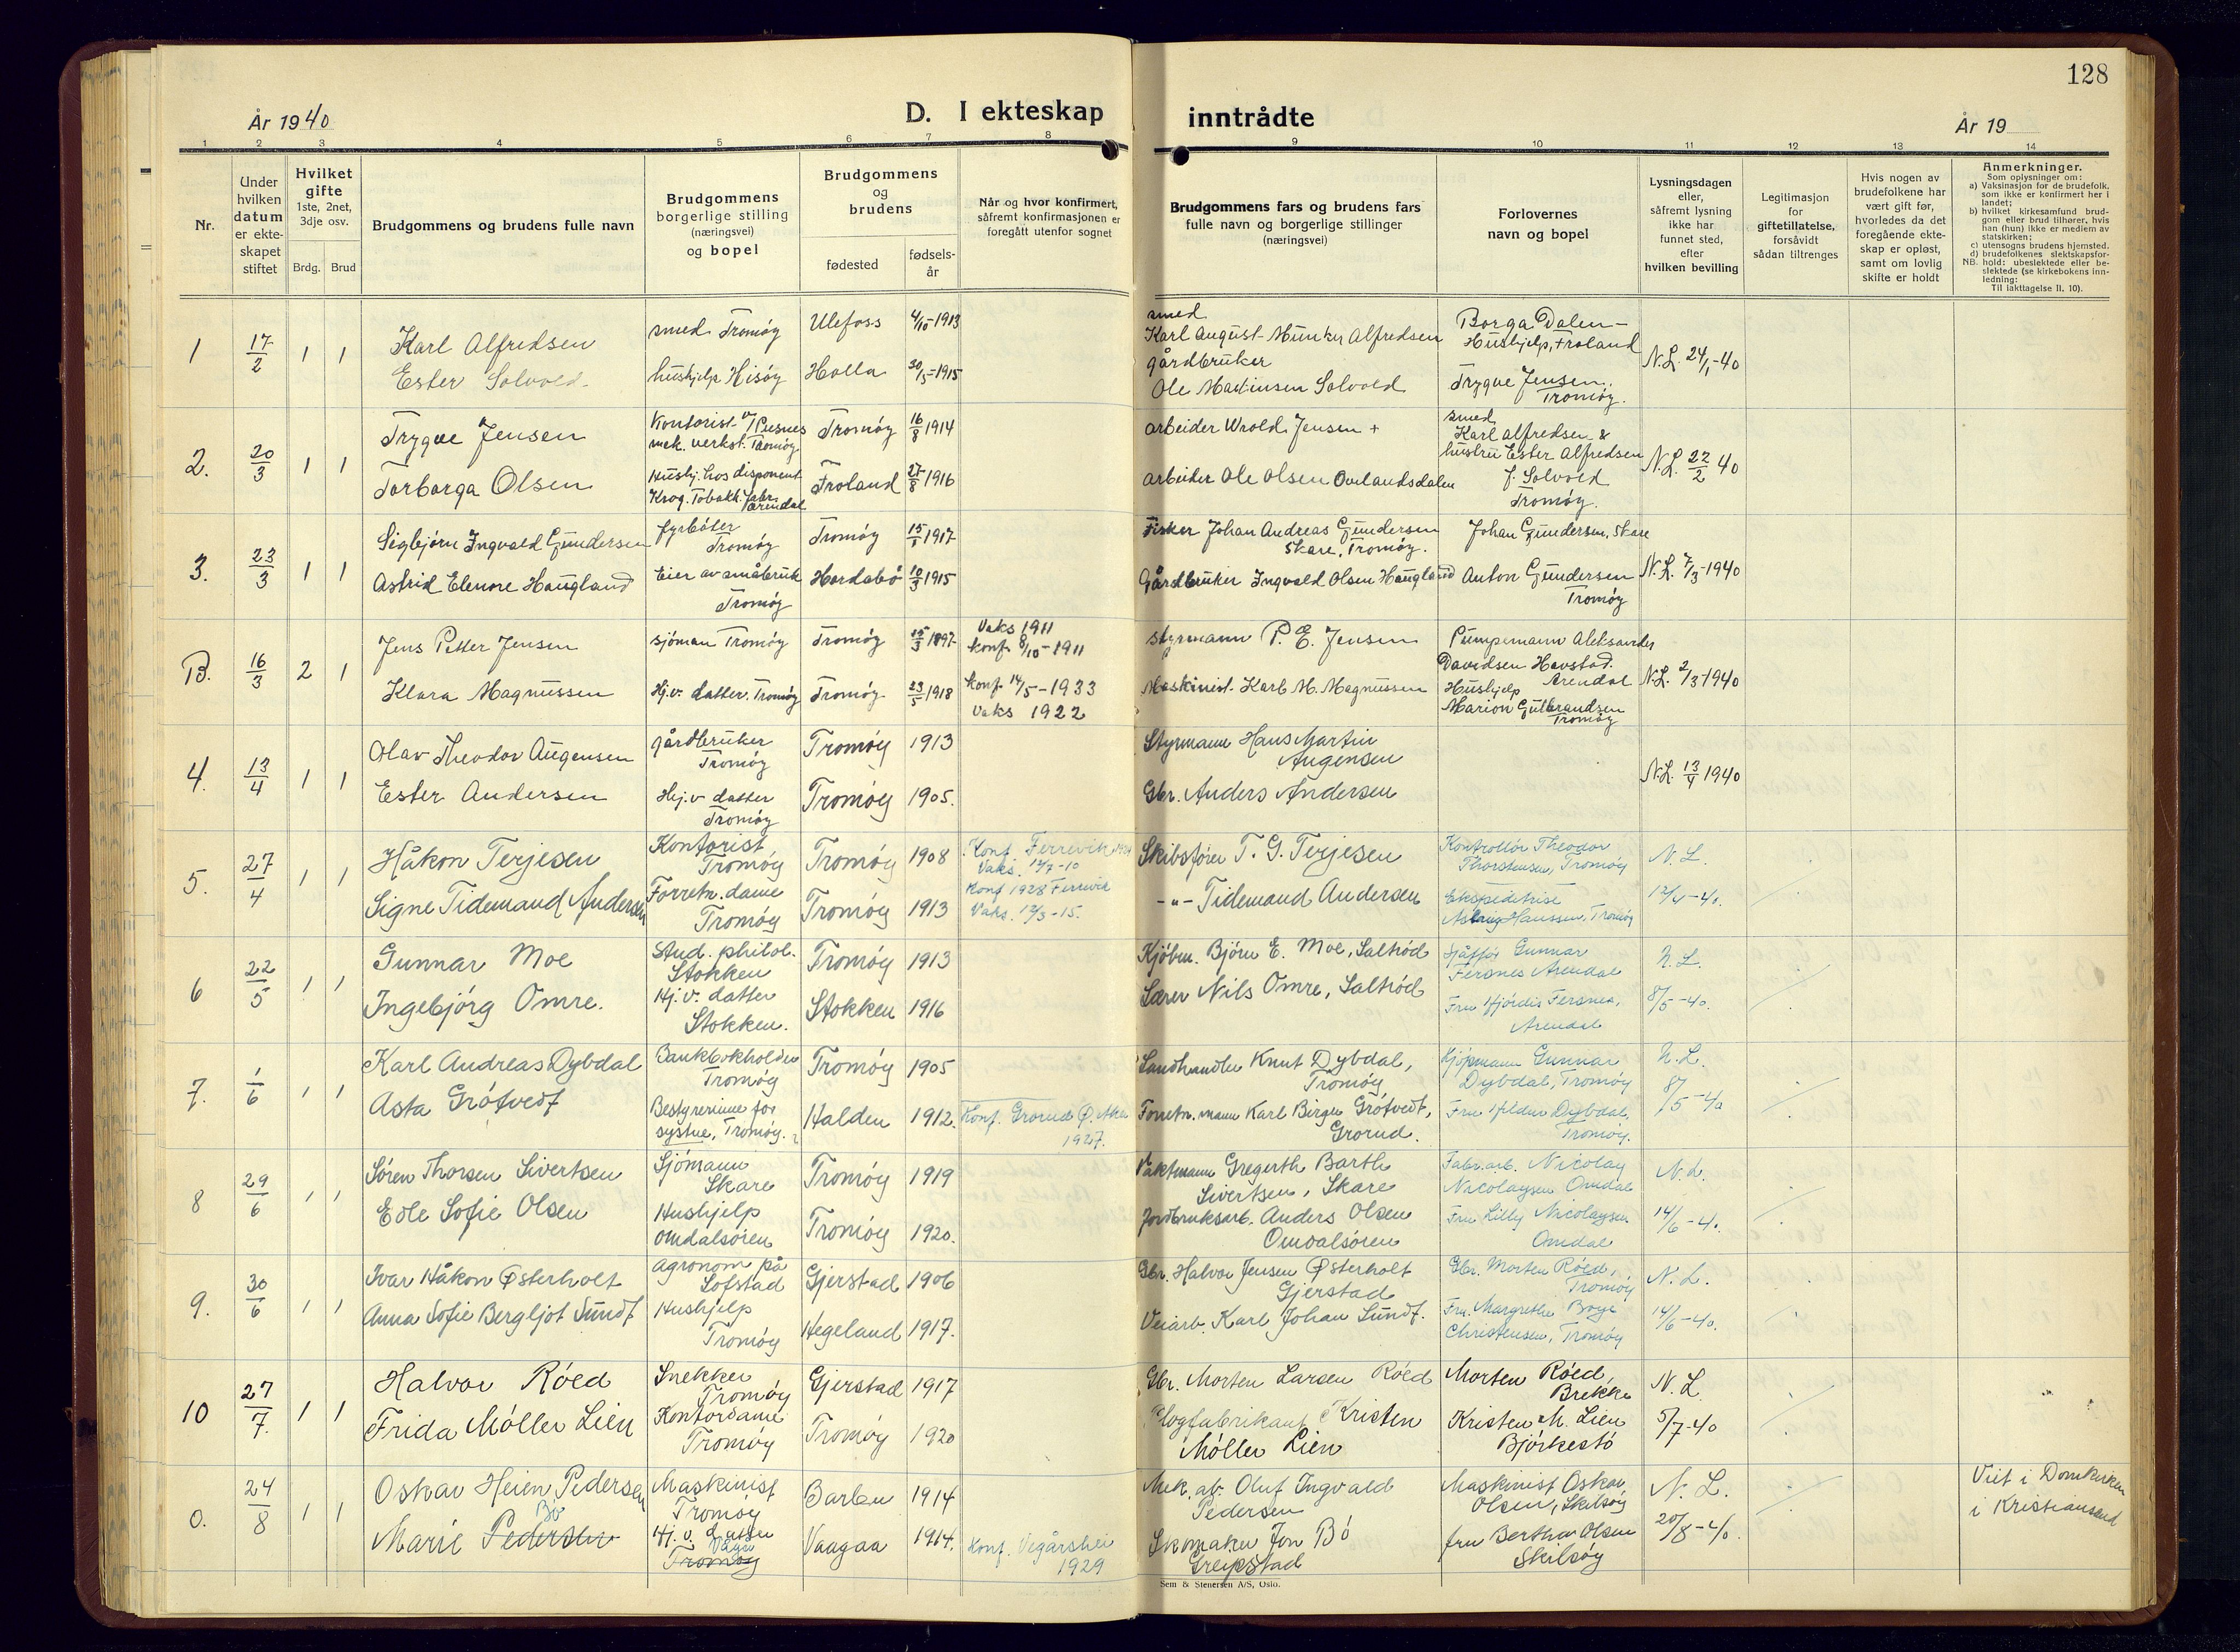 128
År 1940
D. I ekteskap inntrådte
År 19
1 2 3 4 5 6 7 8 9 10 11 12 13 14
Nr.
Under hvilken datum er ekte-skapet stiftet
Hvilket gifte
1ste, 2net, 3dje osv.
Brdg. Brud
Brudgommens og brudens fulle navn
Brudgommens borgerlige stilling (næringsvei) og bopel
Brudgommens og brudens
fødested
fødsels-år
Når og hvor konfirmert, såfremt konfirmasjonen er foregått utenfor sognet
Brudgommens fars og brudens fars fulle navn og borgerlige stillinger (næringsvei)
Forlovernes navn og bopel
Lysningsdagen eller, såfremt lysning ikke har funnet sted, efter hvilken bevilling
Legitimasjon for giftetillatelse, forsåvidt sådan tiltrenges
Hvis nogen av brudefolkene har vært gift før, hvorledes da det foregående ekte-skap er opløst, samt om lovlig skifte er holdt
Anmerkninger.
Som oplysninger om:
a) Vaksinasjon for de brudefolk, som ikke er konfirmert her i landet;
b) hvilket kirkesamfund brud-gom eller brud tilhører, hvis han (hun) ikke er medlem av statskirken;
c) utensogns brudens hjemsted.
d) brudefolkenes slektskapsfor-hold: ubeslektede eller be-slektede (se kirkebokens inn-ledning:
NB.
Til iakttagelse II, 10).
1 17/2 1 1
Karl Alfredsen
Ester Solvold
smed Tromøy
hushjelp Hisøy
Ulefoss 4/10-1913
Holla 30/5-1915
smed
Karl August Munker Alfredsen
gårdbruker
Ole Martinsen Solvold
Borga Dalen -
Hushjelp, Froland
Trygve Jensen.
Tromøy.
N.L. 24/1-40
2. 20/3 1 1
Trygve Jensen
Torborga Olsen
Kontorist v/Pusnes
mek. verkst. Tromøy
Hushj. hos disponent
Krog. Tobakk fabr.
Arendal
Tromøy 16/8 1914
Froland 27/8 1916
arbeider Wrold Jensen +
arbeider Ole Olsen Ovelandsdalen
smed
Karl Alfredsen &
hustru Ester Alfredsen
f. Solvold
Tromøy.
N.L. 22/2 40
3. 23/3 1 1
Sigbjørn Ingvald Gundersen
Astrid Elenore Haugland
fyrbøter
Tromøy
Eier av småbruk
Tromøy
Tromøy 15/1 1917
Hordabø 10/3 1915
Fisker Johan Andreas Gundersen
Skare, Tromøy.
Gårdbruker Ingvald Olsen Haugland
Johan Gundersen, Skare
Anton Gundersen
Tromøy
N.L. 7/3-1940
B. 16/3 2 1
Jens Petter Jensen
Klara Magnussen
sjøman Tromøy
Hj.v. datter. Tromøy
Tromøy 1897
Tromøy 23/5 1918
Vaks 1911
konf 8/10-1911
konf 14/5-1933
Vaks 1922
styrmann P. E. Jensen
Maskinist Karl M. Magnussen
Pumpemann Aleksander
Davidsen Havstad.
Arendal
Hushjelp
Marion Gulbrandsen
Tromøy
N.L. 2/3-1940
4. 13/4 1 1
Olav Theodor Augensen
Ester Andersen
gårdbruker
Tromøy
Hj.v datter
Tromøy
Tromøy 1913
Tromøy 1905.
Styrmann Hans Martin
Augensen
Gbr. Anders Andersen
N.L. 13/4 1940
5. 27/4 1 1
Håkon Terjesen
Signe Tidemand Andersen
Kontorist
Tromøy
Forretn. dame
Tromøy
Tromøy 1908
Tromøy 1913
Konf. Færvik
Vaks. 12/7-10
Konf 1928 Færvik
Vaks. 12/3-15.
Skibsfører T. G. Terjesen
-"- Tidemand Andersen
Kontrollør Theodor
Thorstensen, Tromøy
Ekspeditrise
Hanssen, Tromøy
N.L.
12/4-40.
6 22/5 1 1
Gunnar Moe
Ingebjørg Omre.
Stud. philol.
Stokken
Hj.v. datter
Stokken.
Tromøy 1913
Stokken 1916
Kjøbm. Bjørn E. Moe, Saltrød
Lærer Nils Omre, Saltrød
Gunnar
Fersnes Arendal
Fru Hjørdis Fersnes,
Arendal
N.L.
8/5-40.
7. 1/6 1 1
Karl Andreas Dybdal
Asta Grøtvedt
Bankbokholder
Tromøy
Bestyrerinne for
systue, Tromøy.
Tromøy 1905
Halden 1912.
Konf. Grorud Ø. Aker
1927.
Landhandler Knut Dybdal,
Tromøy
Forretn. mann Karl Birger Grøtvedt,
Grorud.
Kjøpmann Gunnar
Dybdal, Tromøy
Fru Hilda Dybdal,
Tromøy.
N.L.
8/5-40
8 29/6 1 1
Søren Thorsen Sivertsen
Edle Sofie Olsen
Sjømann
Skare
Hushjelp
Omdalsøren
Tromøy 1919
Tromøy 1920.
Vaktmann Gregerth Barth
Sivertsen, Skare
Jordbruksarb. Anders Olsen
Omdalsøren
Fabr.arb. Nicolay
Nicolaysen Omdal
Fru Lilly Nicolaysen
Omdal
N.L.
14/6-40.
9. 30/6 1 1
Ivar Håkon Østerholt
Anna Sofie Bergljot Sundt
Agronom på
Sofstad
Hushjelp
Tromøy
Gjerstad 1906
Hegeland 1917.
Gbr. Halvor Jensen Østerholt
Gjerstad
Veiarb. Karl Johan Sundt.
Gbr. Morten Røed,
Tromøy
Fru. Margrethe Boye
Christensen, Tromøy
N.L.
14/6-40.
10 27/7. 1 1
Halvor Røed
Frida Møller Lien
Snekker
Tromøy
Kontordame
Tromøy
Gjerstad 1917
Tromøy 1920
Gbr. Morten Larsen Røed
Plogfabrikant Kristen
Møller Lien
Morten Røed
Brekke
Kristen M. Lien
Bjørkestø
N.L
5/7-40
0. 24/8 1 1
Oskar Heien Pedersen
Bø
Marie Pedersen
Maskinist
Tromøy
Hj.v. datter
Vågå
Tromøy
Barbu 1914
Vaagaa 1914.
Konf. Vegårshei
1929
Mek. arb. Oluf Ingvald
Pedersen
Skomaker Jon Bø
Greipstad
Maskinist Oskar
Olsen, Skilsøy
fru Bertha Olsen
Skilsøy
N.L.
20/8-40.
Viet i Domkirken
i Kristiansand
Sem & Stenersen A/S, Oslo.